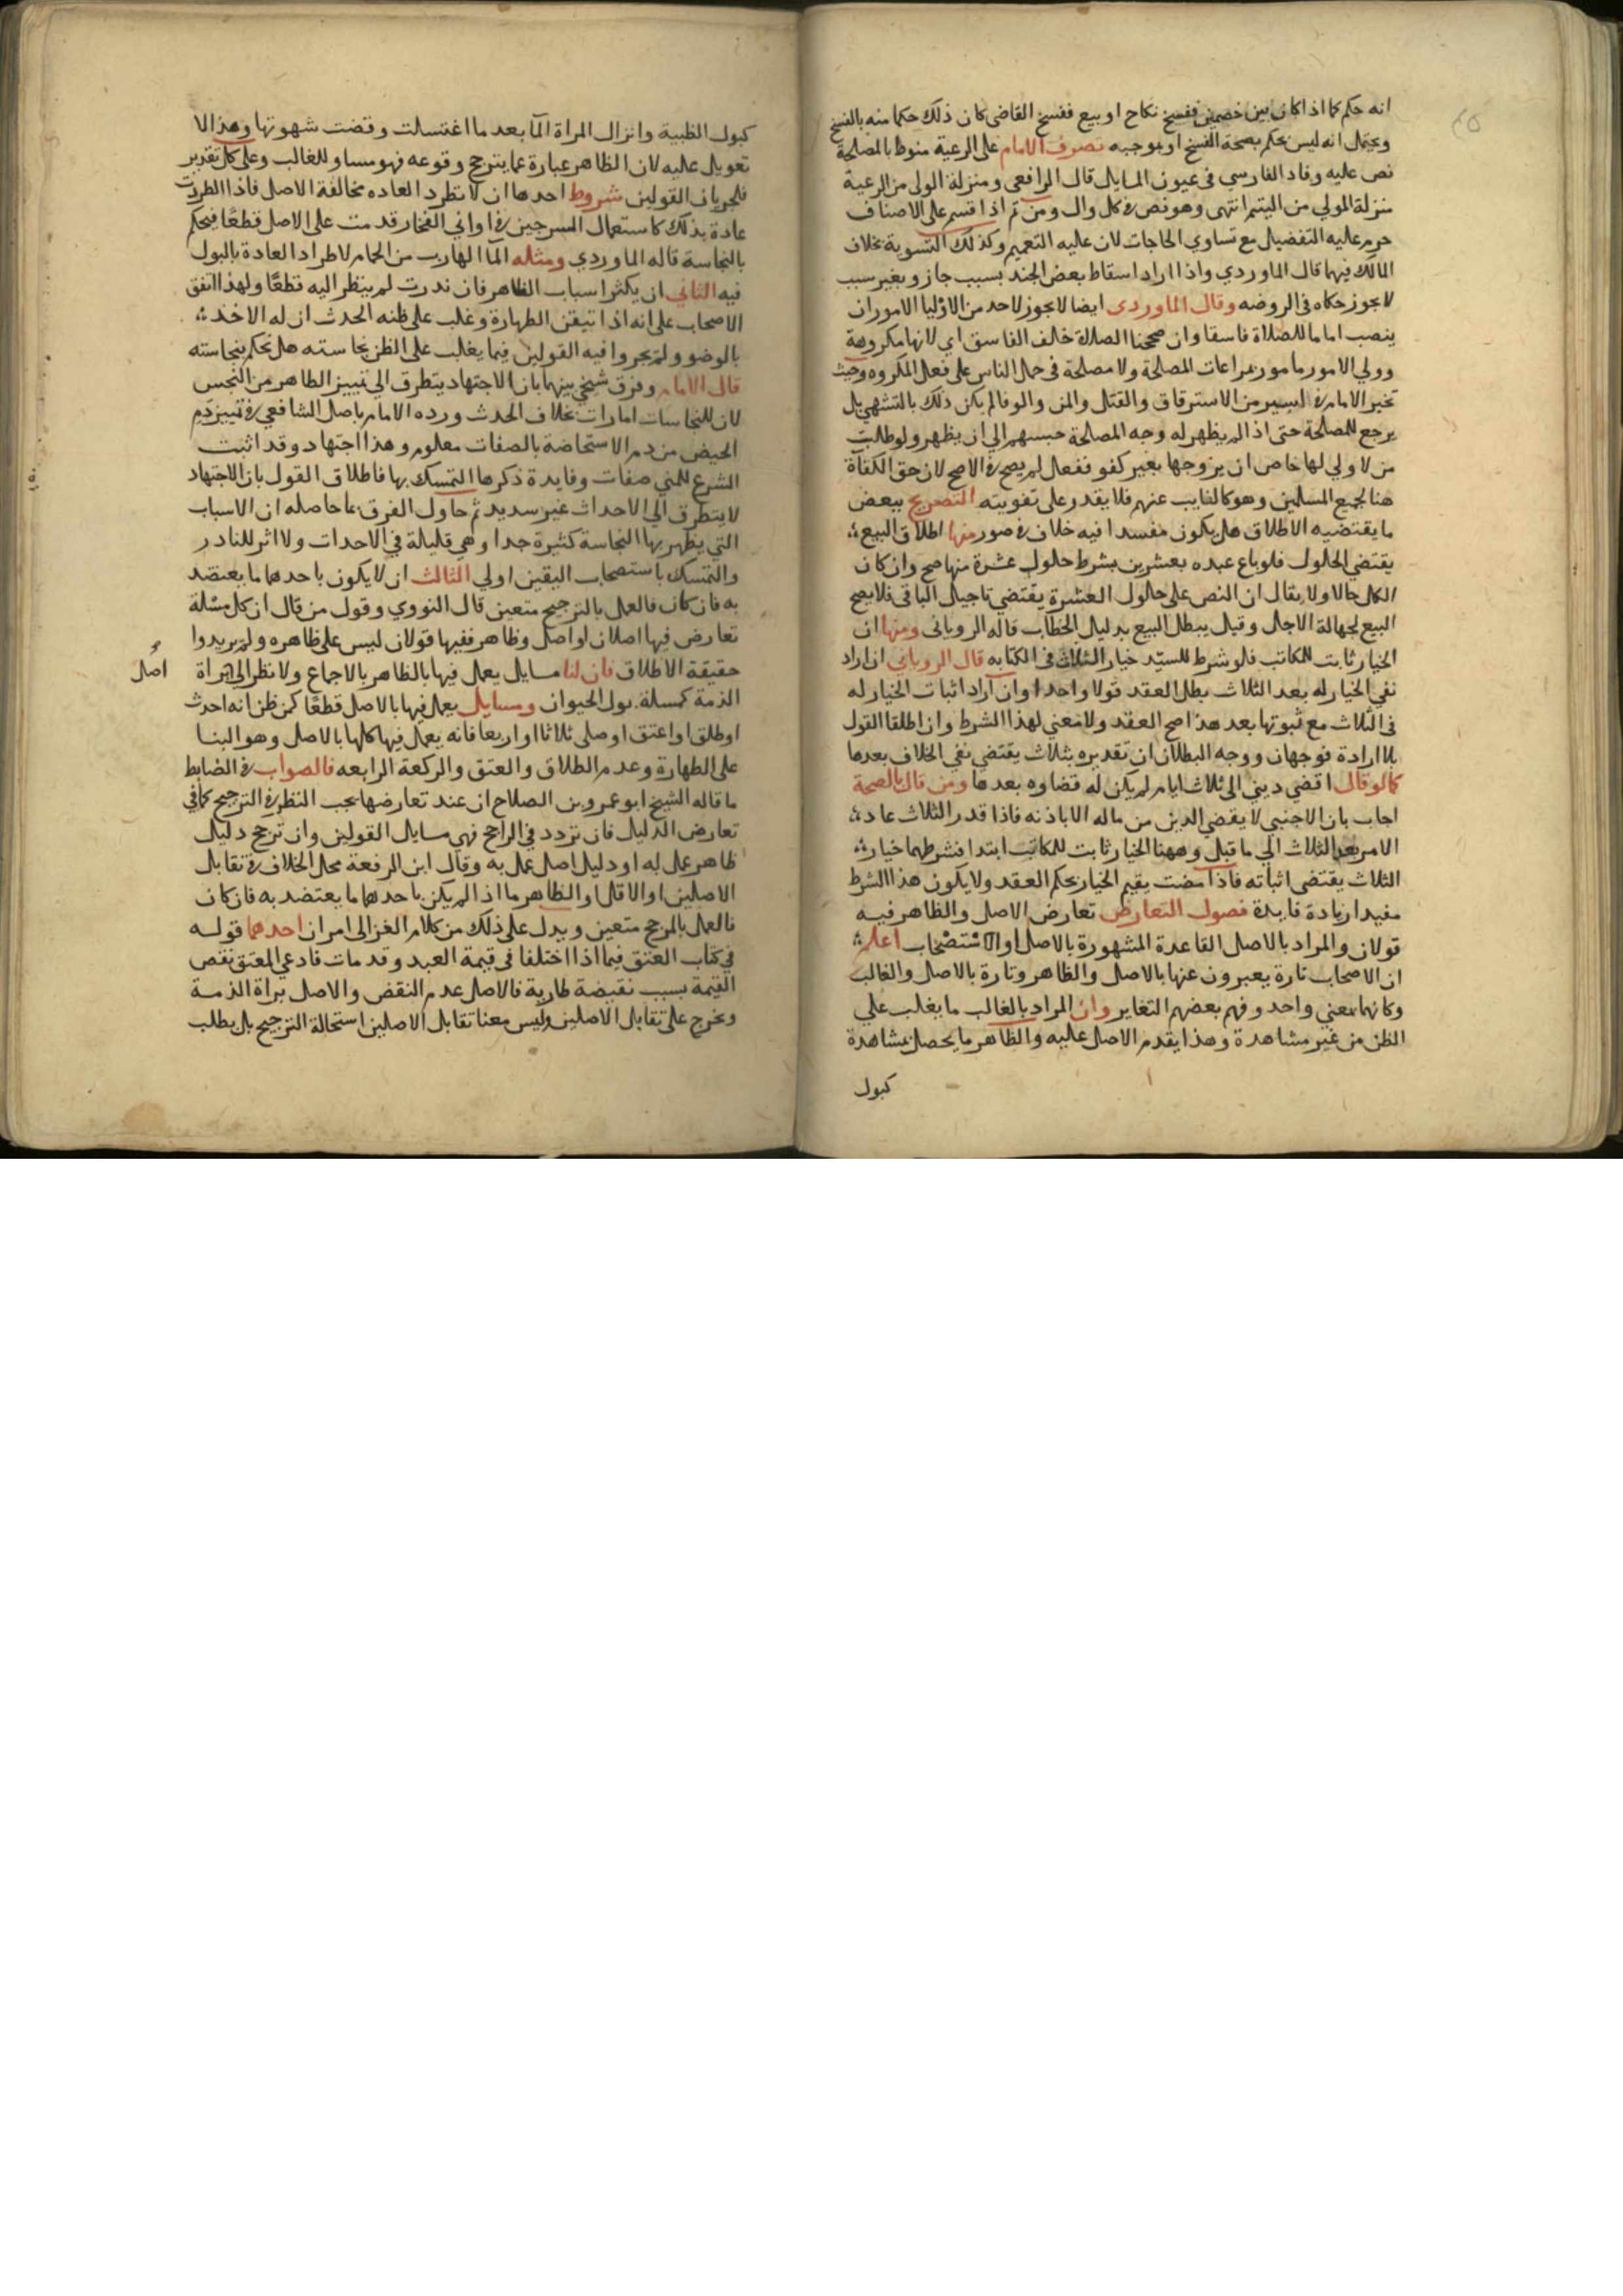 انه حكم كما اذا كان بين خصمين ففسخ نكاح او بيع ففسخ القاضى كان ذلك حكما منه بالفسخ
ويحتمل انه ليس بحكم بصحة الفسخ او بموجبه تصرف الامام على الرعية منوط بالمصلحة
نص عليه وقاد الفارسي فى عيون المسايل قال الرافعى ومنزلة الولى من الرعية
منزلة المولي من اليتيم انتهى وهو نص فى كل وال ومن ثم اذا قسم على الاصناف
حرم عليه التفضيل مع تساوي الحاجات لان عليه التعميم وكذلك التسوية بخلاف
المالك فيهما قال الماوردي واذا اراد اسقاط بعض الجند بسبب جاز وبغير سبب
لا يجوز حكاه فى الروضه وقال الماوردى ايضا لا يجوز لاحد من الاوليا الامور ان
ينصب اماما للصلاة فاسقا وان صححنا الصلاة خلف الفاسق اي لانها مكروهة
وولي الامور مامور بمراعات المصلحة ولا مصلحة فى حمل الناس على فعل المكروه وحيث
تخير الامام فى اسير من الاسترقاق والقتل والمن والوفا لم يكن ذلك بالتشهي بل
يرجع للمصلحة حتى اذا لم يظهر له وجه المصلحة حبسهم الي ان يظهر ولو طالبت
من لا ولي لها خاص ان يزوجها بغير كفو ففعل لم يصح فى الاصح لان حق الكفاة
هنا لجميع المسلمين وهو كالغايب عنهم فلا يقدر على تفويته التصريح ببعض
ما يقتضيه الاطلاق هل يكون مفسدا فيه خلاف فى صور منها اطلاق البيع
يقتضي الحلول فلو باع عبده بعشرين بشرط حلول عشرة منها صح وان كان
الكل حالا ولا يقال ان النص على حلول العشرة يقتضي تاجيل الباقى فلا يصح
البيع لجهالة الاجل وقيل يبطل البيع بدليل الخطاب قاله الرويانى ومنها ان
الخيار ثابت للكاتب فلو شرط للسيد خيار الثلاث فى الكتابه قال الروياني ان اراد
نفي الخيار له بعد الثلاث بطل العقد قولا واحدا وان اراد اثبات الخيار له
فى الثلاث مع ثبوتها بعد هذا صح العقد ولا معني لهذا الشرط وان اطلقا القول
بلا ارادة فوجهان ووجه البطلان ان تقديره بثلاث يقتضي نفي الخلاف بعدها
كما لو قال اقضي ديني الى ثلاث ايام لم يكن له قضاوه بعدها ومن قال بالصحة
اجاب بان الاجنبي لا يقضي الدين من ماله الا باذنه فاذا قدر الثلاث عاد
الامر بعد الثلاث الي ما قبل وههنا الخيار ثابت للكاتب ابتدا فشرطهما خيار
الثلاث يقتضى اثباته فاذا مضت يقيم الخيار بحكم العقد ولا يكون هذا الشرط
مفيدا زيادة فايدة فصول التعارض تعارض الاصل والظاهر فيه
قولان والمراد بالاصل القاعدة المشهورة بالاصل او الاستصحاب اعلم
ان الاصحاب تارة يعبرون عنها بالاصل والظاهر وتارة بالاصل والغالب
وكانهما بمعني واحد وفهم بعضهم التغاير وان المراد بالغالب ما يغلب علي
الظن من غير مشاهدة وهذا يقدم الاصل عليه والظاهر ما يحصل بمشاهدة
كبول
كبول الظبية وانزال المراة الما بعد ما اغتسلت وقضت شهوتها وهذا لا
تعويل عليه لان الظاهر عبارة عما يترجح وقوعه فهو مساو للغالب وعلى كل تقدير
فلجريان القولين شروط احدها ان لا تطرد العاده مخالفة الاصل فاذا اطردت
عادة بذلك كاستعمال السرجين فى اواني الفخار قدمت على الاصل قطعا فيحكم
بالنجاسة قاله الماوردي ومثله الما الهارب من الحمام لاطراد العادة بالبول
فيه الثاني ان يكثر اسباب الظاهر فان ندرت لم ينظر اليه قطعا ولهذا اتفق
الاصحاب على انه اذا تيقن الطهارة وغلب على ظنه الحدث ان له الاخذ
بالوضو ولم يجروا فيه القولين فيما يغلب على الظن نجاسته هل يحكم بنجاسته
قال الامام وفرق شيخي بينهما بان الاجتهاد يتطرق الي تمييز الطاهر من النجس
لان للنجاسات امارات بخلاف الحدث ورده الامام باصل الشافعي فى تمييز دم
الحيض من دم الاستحاضة بالصفات معلوم وهذا اجتهاد وقد اثبت
الشرع للمني صفات وفايدة ذكرها التمسك بها فاطلاق القول بان الاجتهاد
لا يتطرق الي الاحداث غير سديد ثم حاول الفرق بما حاصله ان الاسباب
التي يظهر بها النجاسة كثيرة جدا وهي قليلة في الاحداث ولا اثر للنادر
والتمسك باستصحاب اليقين اولي الثالث ان لا يكون باحدهما ما يعتضد
به فان كان فالعمل بالترجيح متعين قال النووي وقول من قال ان كل مسئلة
تعارض فيها اصلان او اصل وظاهر ففيها قولان ليس على ظاهره ولم يريدوا
حقيقة الاطلاق فان لنا مسايل يعمل فيها بالظاهر بالاجماع ولا نظر الي براة
اصل
الذمة كمسلة بول الحيوان ومسايل يعمل فيها بالاصل قطعا كمن ظن انه احدث
او طلق او اعتق او صلى ثلاثا او اربعا فانه يعمل فيها كلها بالاصل وهو البنا
على الطهارة وعدم الطلاق والعتق والركعة الرابعه فالصواب فى الضابط
ما قاله الشيخ ابو عمرو بن الصلاح ان عند تعارضها يجب النظر فى الترجيح كما في
تعارض الدليل فان تردد في الراجح فهي مسايل القولين وان ترجح دليل
ظاهر عمل به او دليل اصل عمل به وقال ابن الرفعة محل الخلاف فى تقابل
الاصلين او الاقل او الظاهر ما اذا لم يكن باحدهما ما يعتضد به فان كان
فالعمل بالمرجح متعين ويدل على ذلك من كلام الغزالى امران احدهما قوله
في كتاب العتق فيما اذا اختلفا فى قيمة العبد وقد مات فادعي المعتق نقص
القيمة بسبب نقيصة طارية فالاصل عدم النقض والاصل براة الذمة
ويخرج على تقابل الاصلين وليس معنا تقابل الاصلين استحالة الترجيح بل يطلب